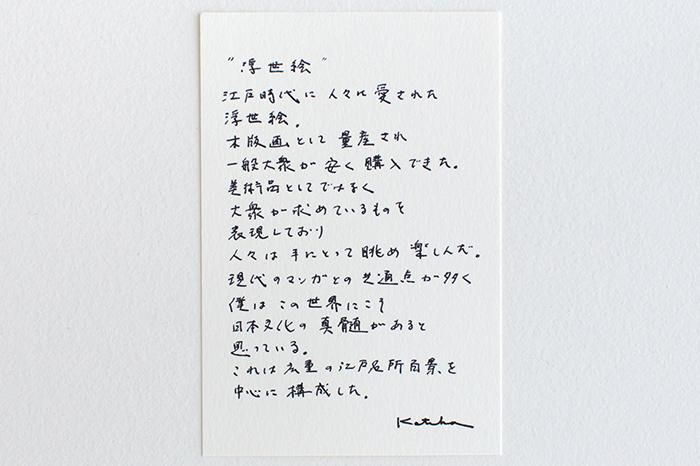 "浮世絵"
江戸時代に人々に愛された
浮世絵。
木版画として量産され
一般大衆が安く購入できた。
美術品としてではなく
大衆が求めているものを
表現しており
人々は手にとって眺め楽しんだ。
現代のマンガとの共通点が多く
僕はこの世界にこそ
日本文化の真髄があると
思っている。
これは広重の江戸名所百景を
中心に構成した。